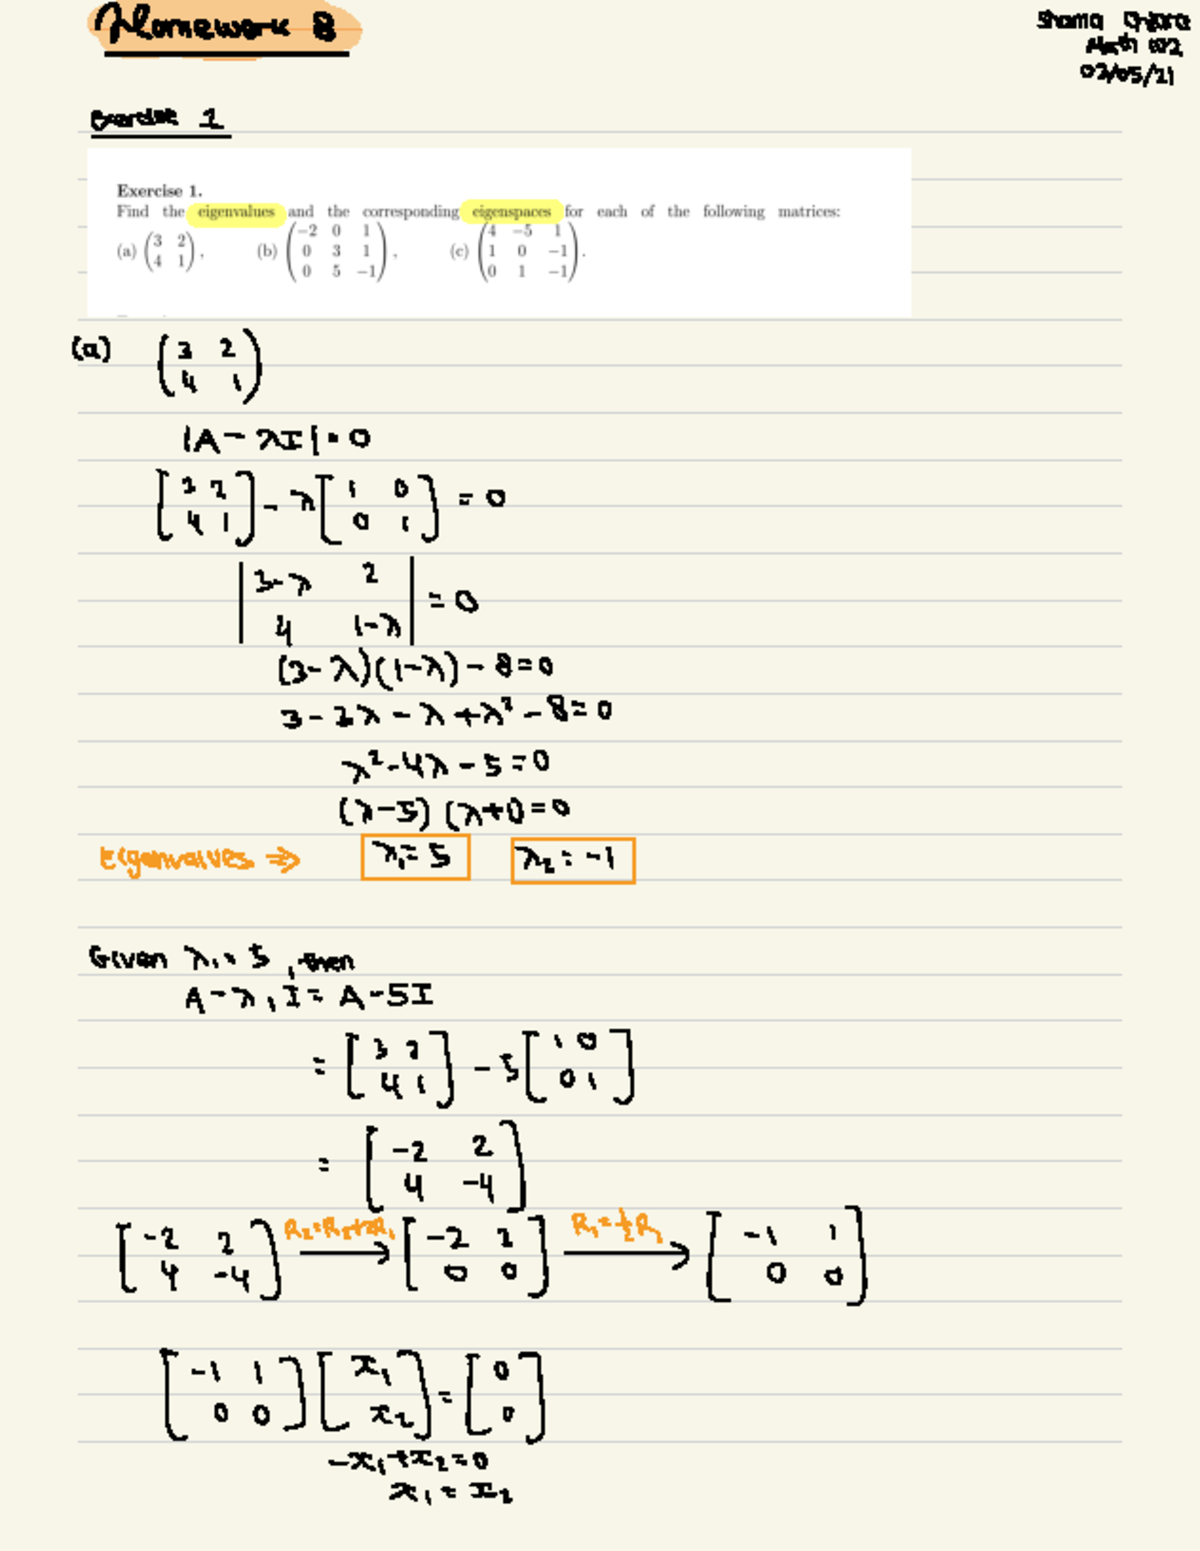 Homework 8
Shama
Math 102
02/05/21
Exercise 1
Exercise 1.
Find the eigenvalues and the corresponding eigenspaces for each of the following matrices:
(a) (3 2; 4 1), (b) (-2 0 1; 0 3 1; 0 5 -1), (c) (4 -5 1; 1 0 -1; 0 1 -1).
(a) (3 2; 4 1)
|A - λI| = 0
[3 2; 4 1] - λ[1 0; 0 1] = 0
|3-λ 2; 4 1-λ| = 0
(3-λ)(1-λ) - 8 = 0
3 - 3λ - λ + λ² - 8 = 0
λ² - 4λ - 5 = 0
(λ-5) (λ+1) = 0
Eigenvalves ⇒ λ₁ = 5 λ₂ = -1
Given λ₁ = 5, then
A - λ₁I = A - 5I
= [3 2; 4 1] - 5[1 0; 0 1]
= [-2 2; 4 -4]
[-2 2; 4 -4] R₂=R₂+2R₁ → [-2 2; 0 0] R₁=½R₁ → [-1 1; 0 0]
[-1 1; 0 0][x₁; x₂] = [0; 0]
-x₁+x₂=0
x₁ = x₂